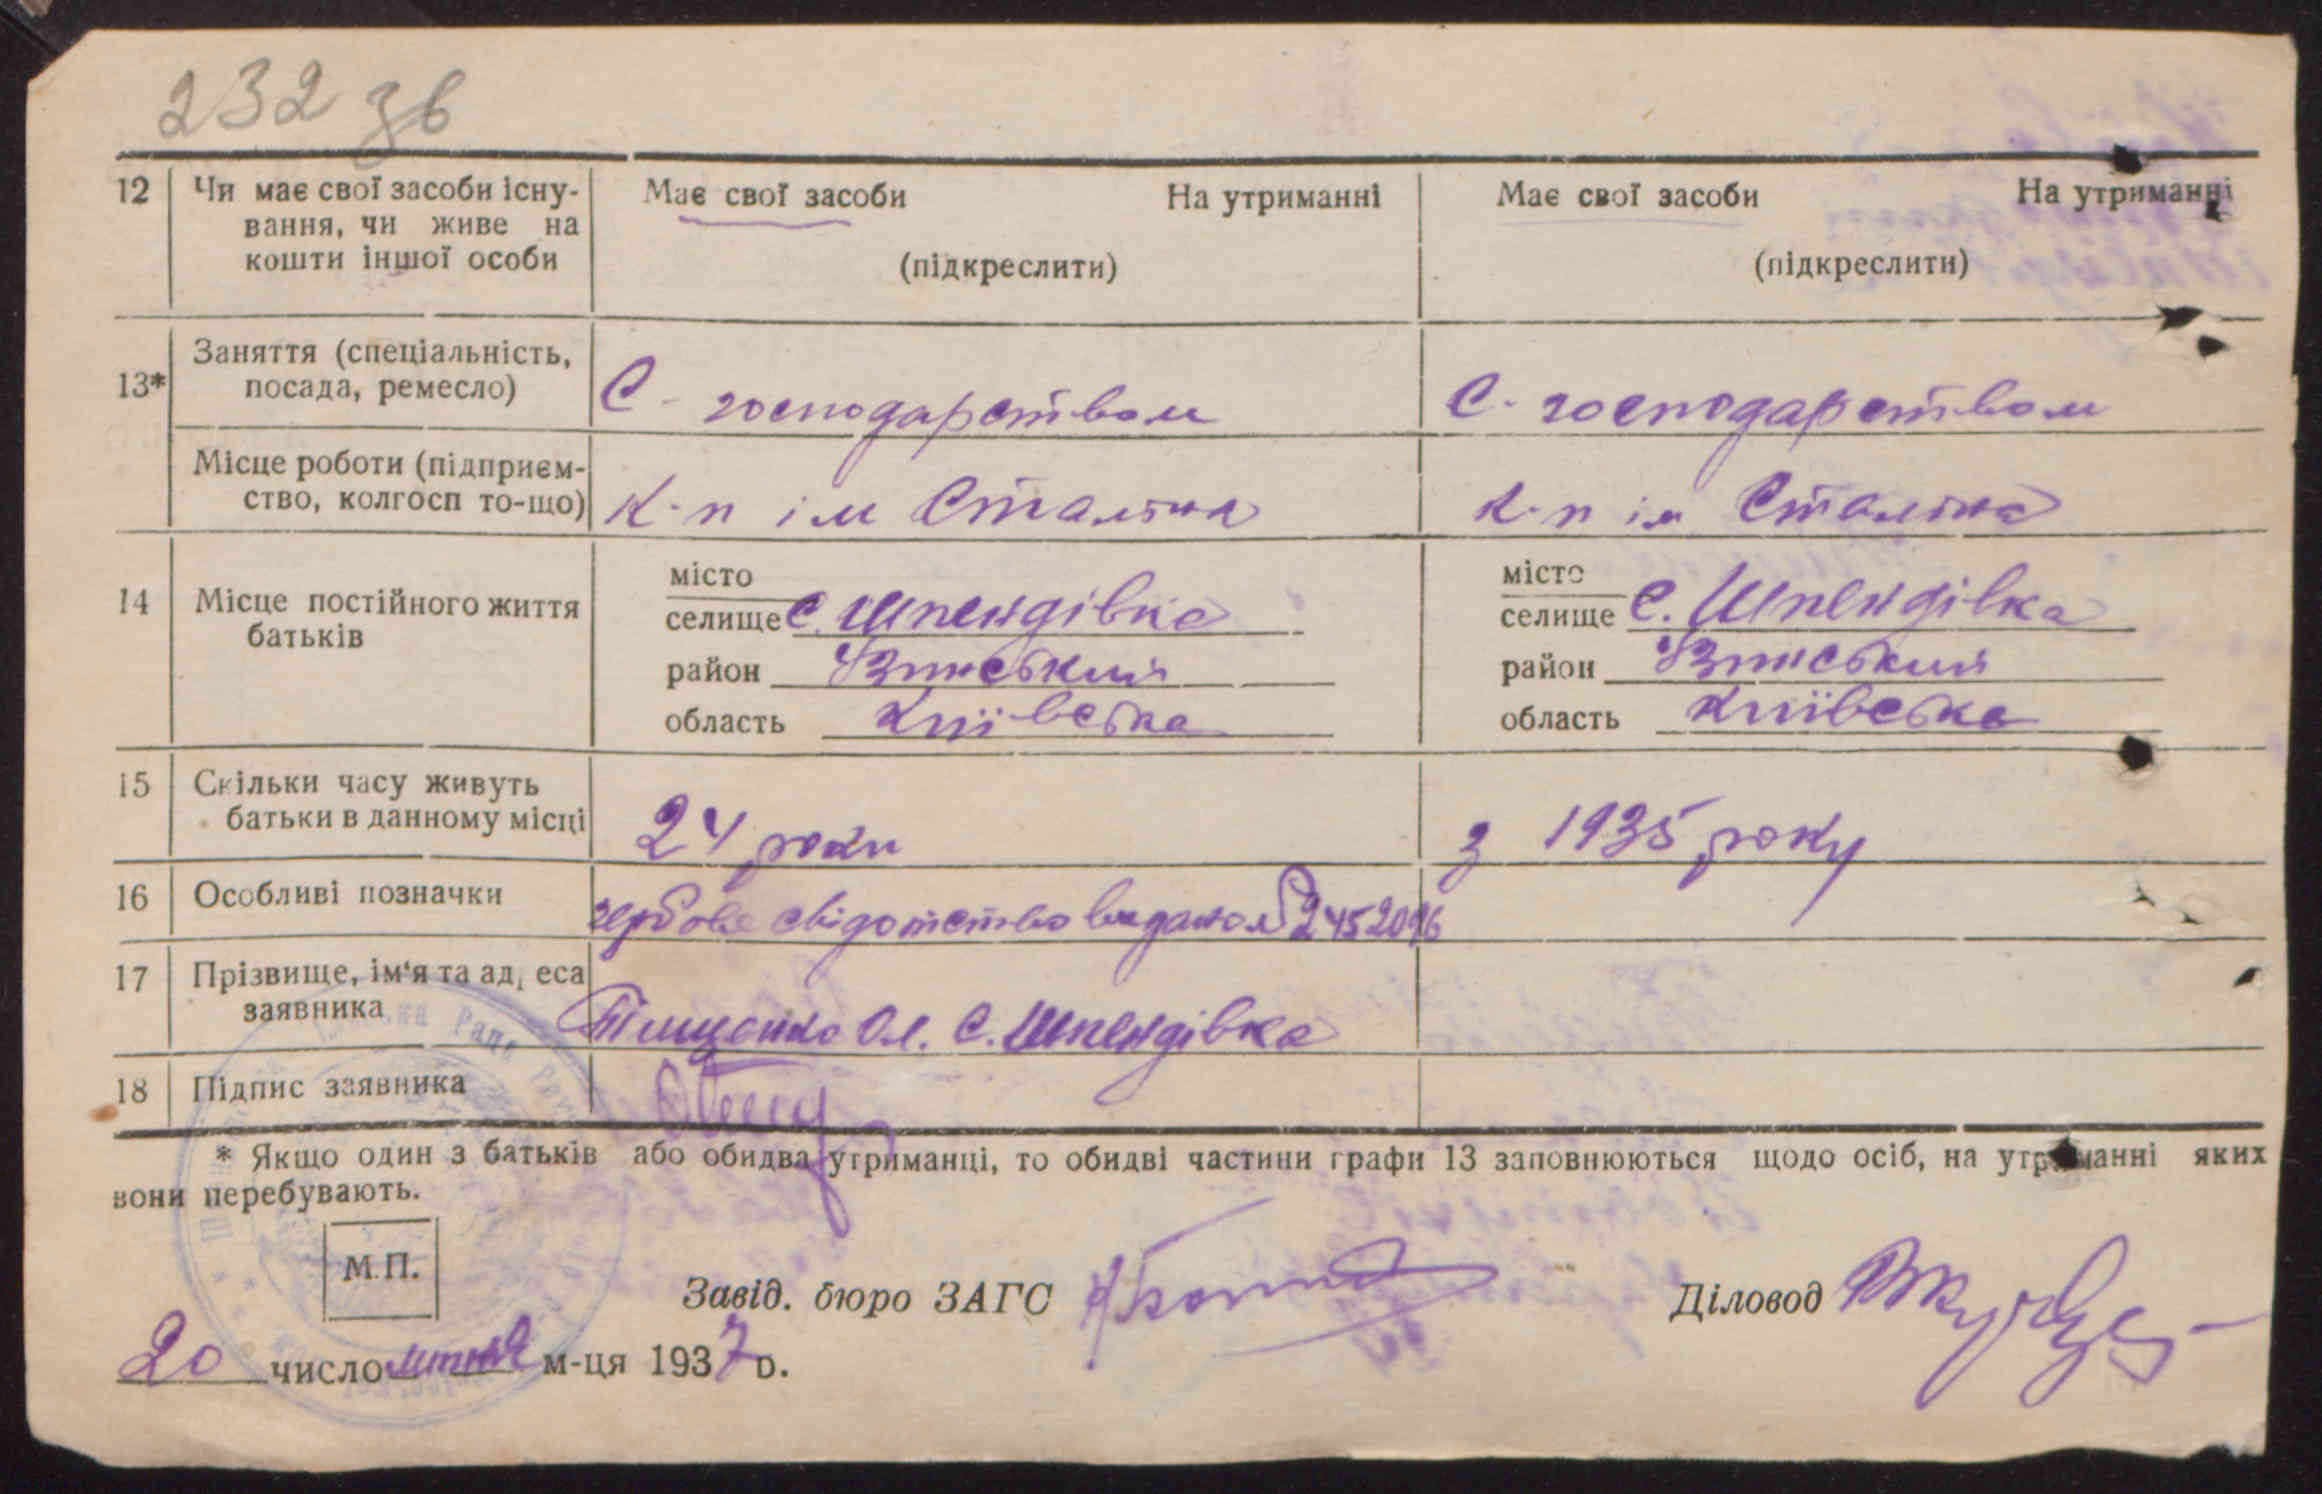 232 зв
12 Чи має свої засоби існу- Має свої засоби На утриманні Має свої засоби На утриманні
вання, чи живе на
кошти іншої особи (підкреслити) (підкреслити)
Заняття (спеціальність,
13* посада, ремесло) С-господарством С-господарством
Місце роботи (підприєм-
ство, колгосп то-що) К-п ім Сталіна К-п ім Сталіна
місто місто
14 Місце постійного життя селище С. Шпендівка селище С. Шпендівка
батьків район Узинський район Узинський
область Київська область Київська
15 Скільки часу живуть
батьки в данному місці 24 роки з 1935 року
16 Особливі позначки гербове свідотство видано № 2452096
17 Прізвище, ім'я та адреса
заявника Тищенко Ол. С. Шпендівка
18 Підпис заявника
* Якщо один з батьків або обидва утриманці, то обидві частини графи 13 заповнюються щодо осіб, на утриманні яких
вони перебувають.
М.П.
Завід. бюро ЗАГС Діловод
20 число м-ця 1937 р.